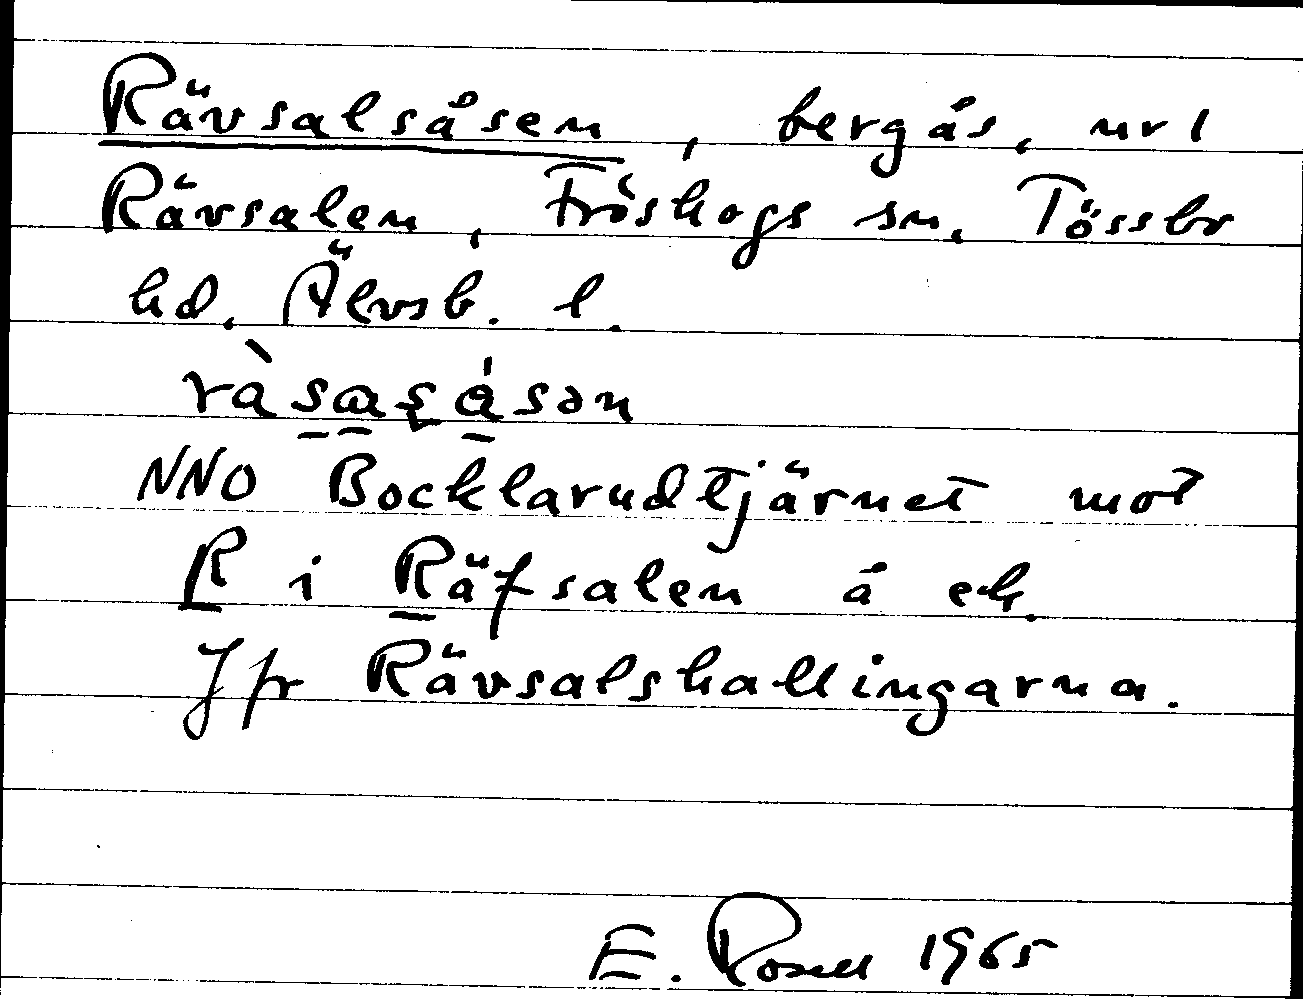 Rävsalsåsen, bergås, nr 1
Rävsalen, Fröskogs sn, Tössbo
hd, Älvsb. l.
ràsasåsən
NNO Bocklarudtjärnet mot
R i Räfsalen å ek.
Jfr Rävsalshallingarna.
E. Rosell 1965